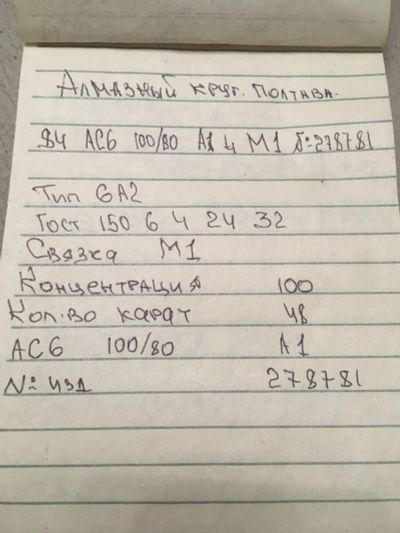 Алмазный круг. Полтава.
84 АС6 100/80 А1 4 М1 Б:278781
Тип 6А2
Гост 150 6 4 24 32
Связка М1
Концентрация 100
Кол-во карат 48
АС6 100/80 А1
№: изд 278781